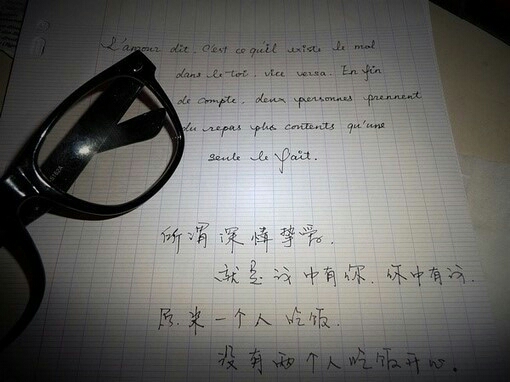 L'amour dit. C'est ce qu'il existe le mal
dans le-toi, vice versa. En fin
de compte, deux personnes prennent
du repas plus contents qu'une
seule le fait.
所谓深情挚爱.
就是这中有你.你中有这.
原来一个人吃饭.
没有两个人吃饭开心.